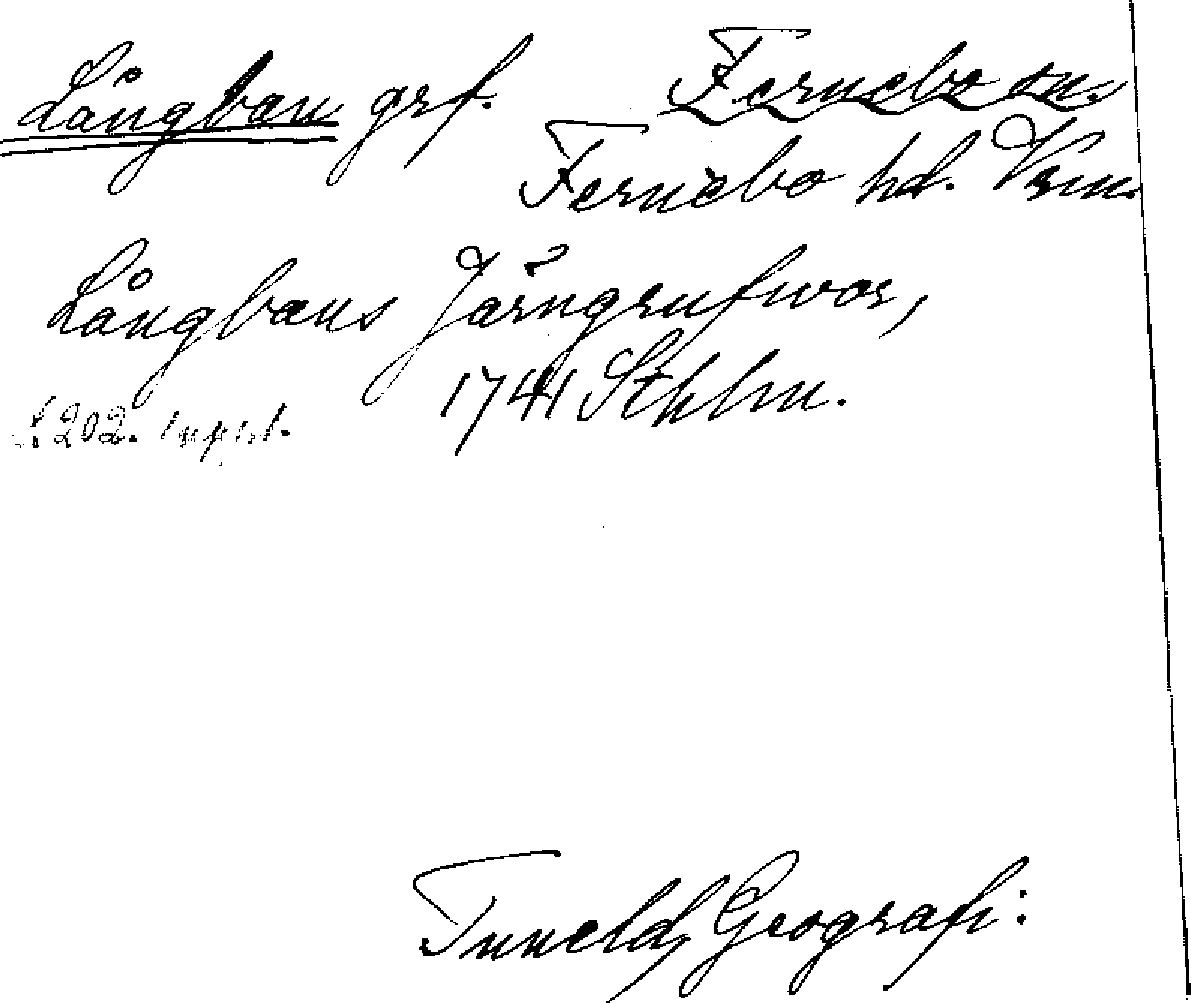 Långban grf. Fernebo sn.
Fernebo hd. Vrm.
Långbans Järngrufwor,
1741 Sthlm.
s. 202.
Tuneld, Geografi: